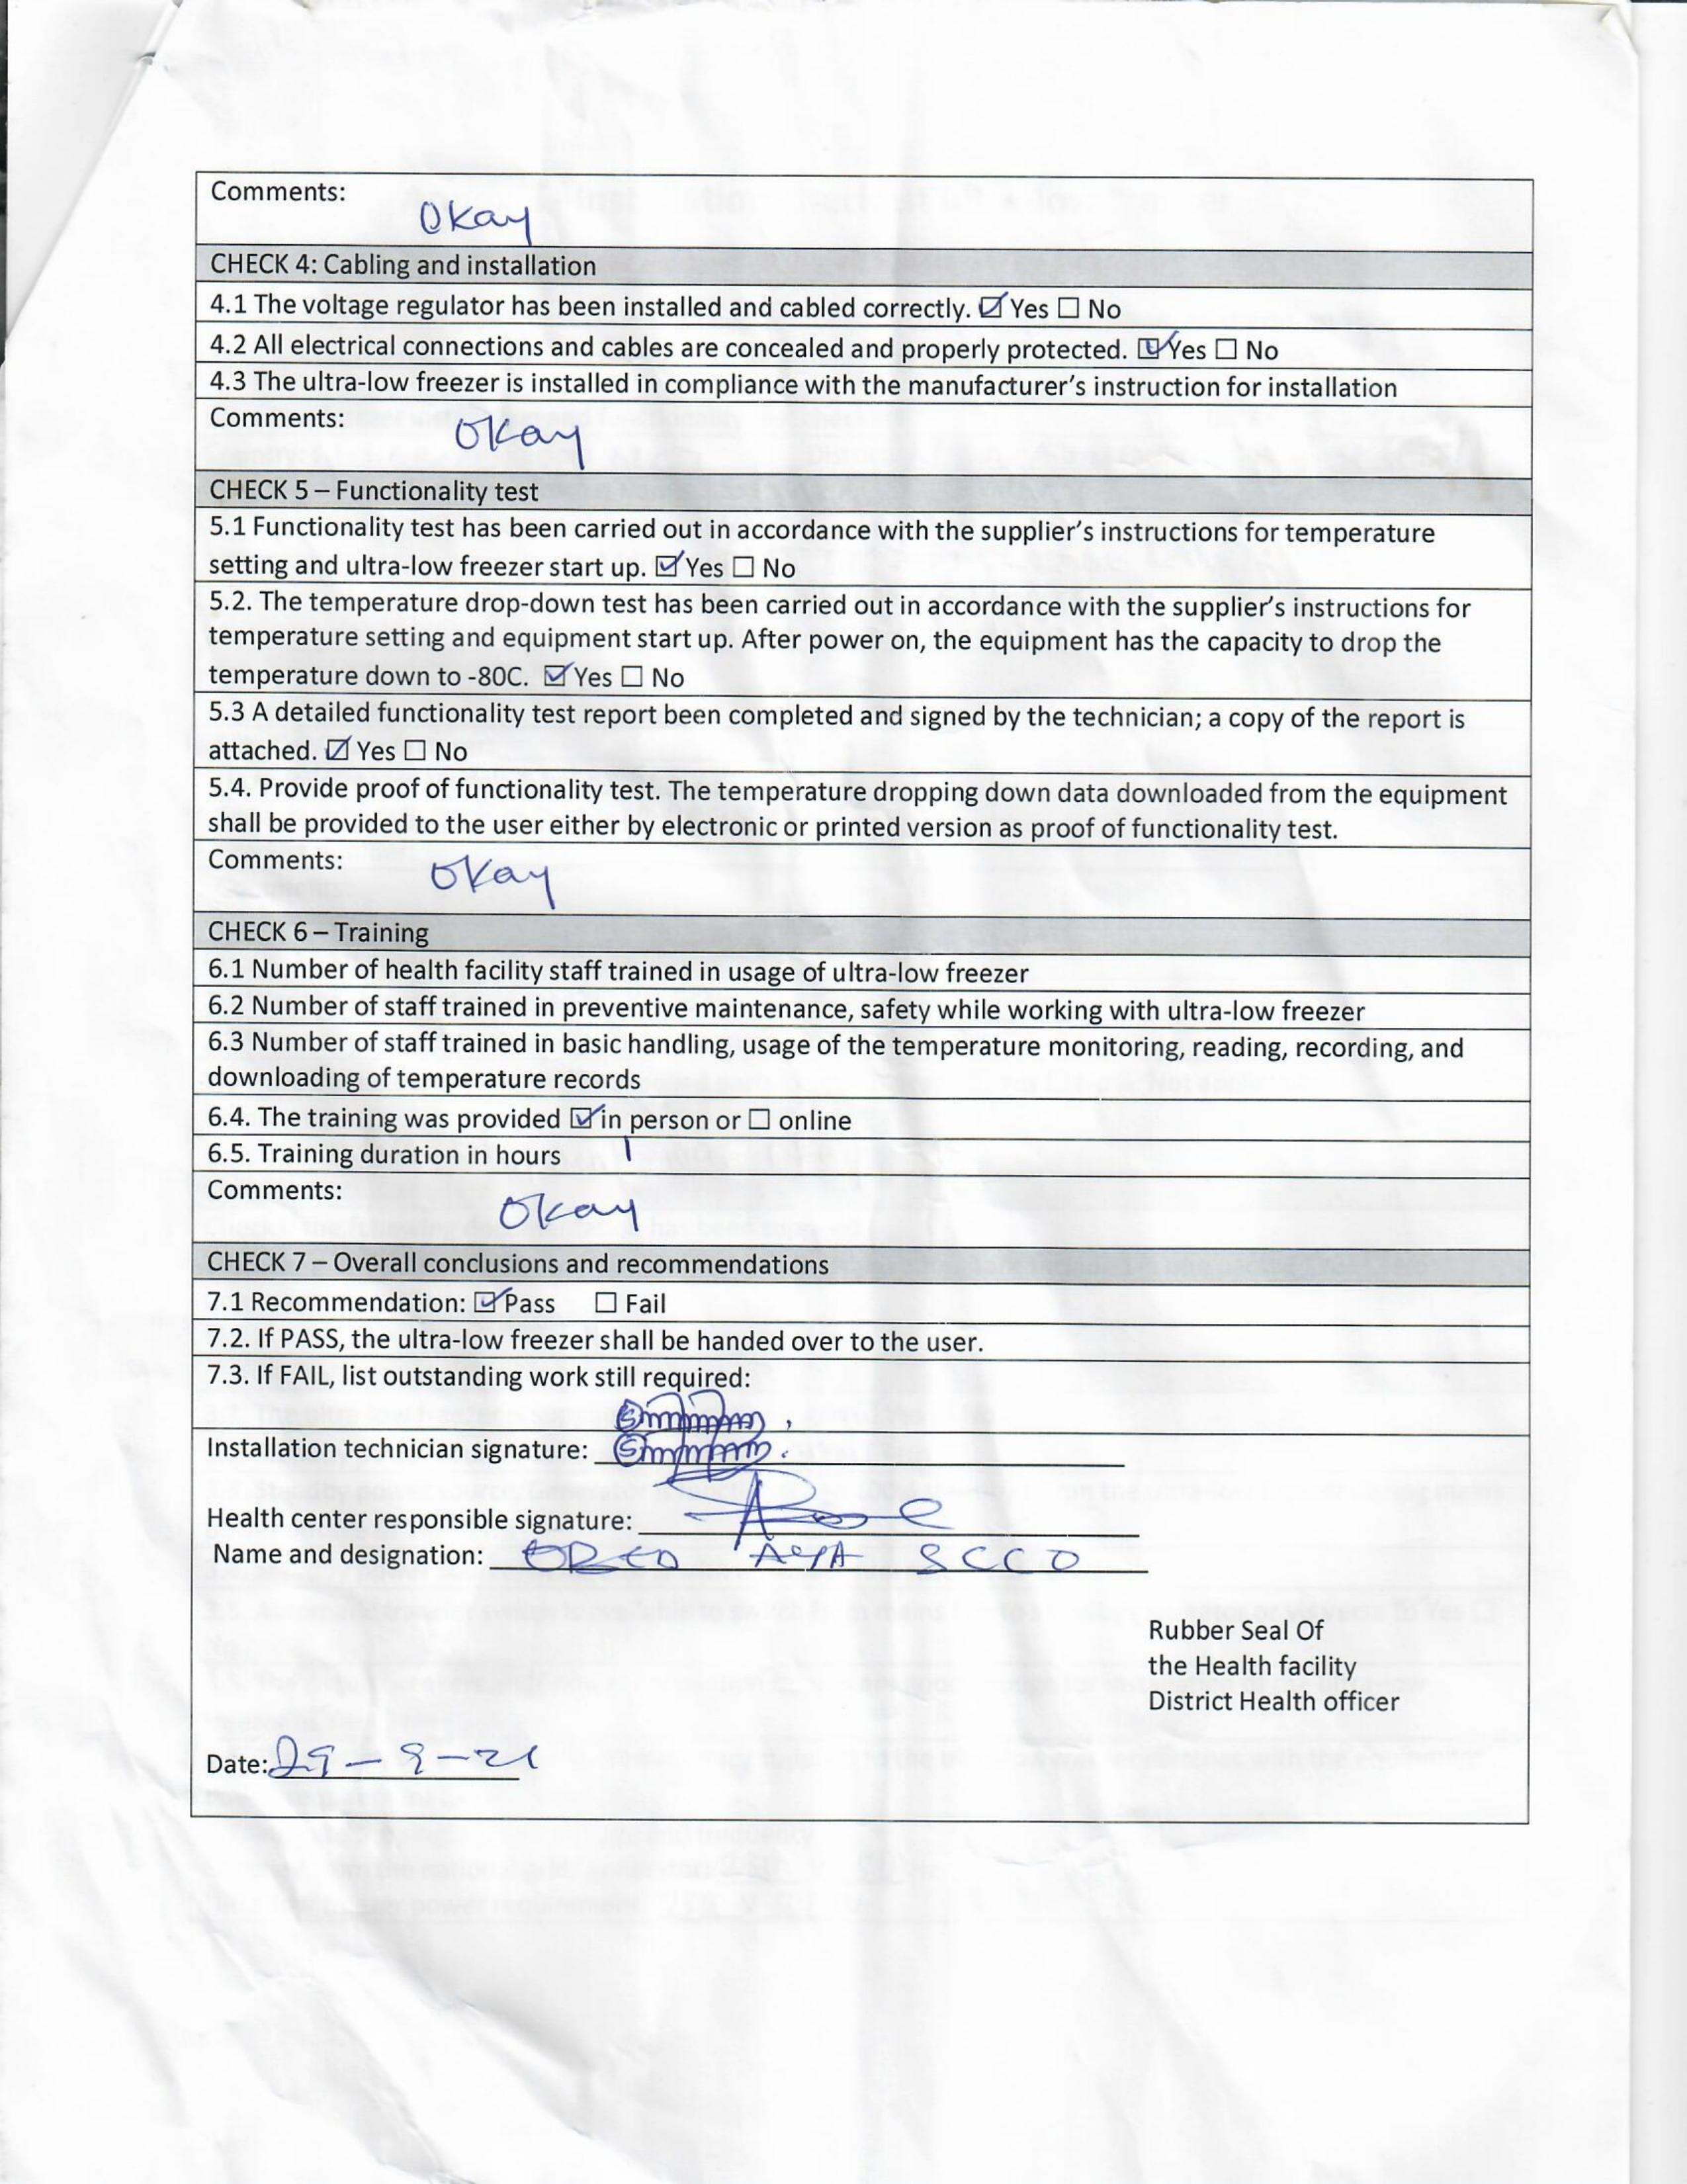 Comments:
Okay
CHECK 4: Cabling and installation
4.1 The voltage regulator has been installed and cabled correctly. ☑ Yes ☐ No
4.2 All electrical connections and cables are concealed and properly protected. ☑ Yes ☐ No
4.3 The ultra-low freezer is installed in compliance with the manufacturer's instruction for installation
Comments: Okay
CHECK 5 – Functionality test
5.1 Functionality test has been carried out in accordance with the supplier's instructions for temperature
setting and ultra-low freezer start up. ☑ Yes ☐ No
5.2. The temperature drop-down test has been carried out in accordance with the supplier's instructions for
temperature setting and equipment start up. After power on, the equipment has the capacity to drop the
temperature down to -80C. ☑ Yes ☐ No
5.3 A detailed functionality test report been completed and signed by the technician; a copy of the report is
attached. ☑ Yes ☐ No
5.4. Provide proof of functionality test. The temperature dropping down data downloaded from the equipment
shall be provided to the user either by electronic or printed version as proof of functionality test.
Comments: Okay
CHECK 6 – Training
6.1 Number of health facility staff trained in usage of ultra-low freezer
6.2 Number of staff trained in preventive maintenance, safety while working with ultra-low freezer
6.3 Number of staff trained in basic handling, usage of the temperature monitoring, reading, recording, and
downloading of temperature records
6.4. The training was provided ☑ in person or ☐ online
6.5. Training duration in hours 1
Comments:
Okay
CHECK 7 – Overall conclusions and recommendations
7.1 Recommendation: ☑ Pass ☐ Fail
7.2. If PASS, the ultra-low freezer shall be handed over to the user.
7.3. If FAIL, list outstanding work still required:
Installation technician signature:
Health center responsible signature:
Name and designation: SCCO
Rubber Seal Of
the Health facility
District Health officer
Date: 29-9-21